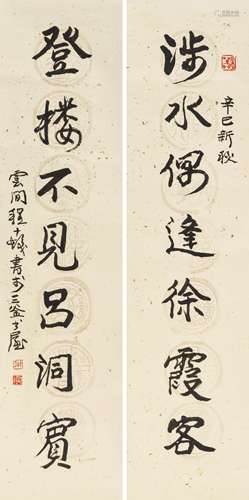 涉水偶逢徐霞客
辛巳新秋
登楼不見吕洞賓
雲間程十髮書於三釜書屋